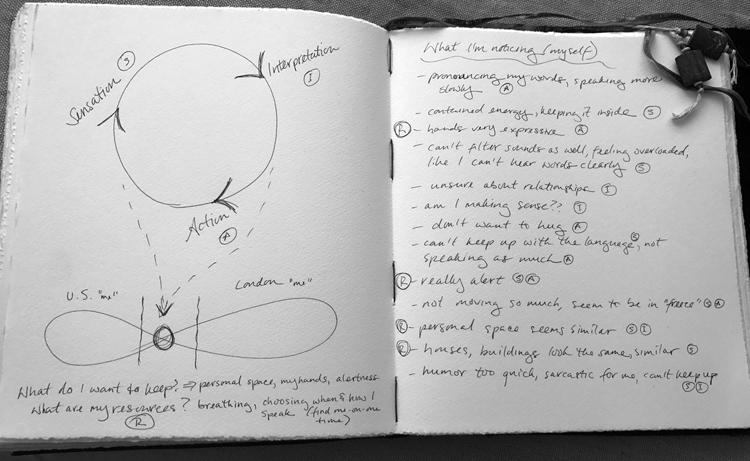 Sensation Ⓢ
Interpretation
Ⓘ
Action
Ⓐ
U.S. "me"
London "me"
What do I want to keep? ⇒ personal space, my hands, alertness
What are my resources? breathing, choosing when & how I
Ⓡ
speak (find me-on-me
time)
What I'm noticing (myself)
- pronouncing my words, speaking more
slowly Ⓐ
- contained energy, keeping it inside Ⓢ
Ⓡ - hands very expressive Ⓐ
- can't filter sounds as well, feeling overloaded,
like I can't hear words clearly Ⓢ
- unsure about relationships Ⓘ
- am I making sense?? Ⓘ
- don't want to hug Ⓐ
- can't keep up with the language Ⓢ, not
speaking as much Ⓐ
Ⓡ - really alert Ⓢ Ⓐ
- not moving so much, seem to be in "freeze" Ⓢ Ⓐ
Ⓡ - personal space seems similar Ⓢ Ⓘ
Ⓡ - houses, buildings look the same, similar Ⓢ
- humor too quick, sarcastic for me, can't keep up
Ⓢ Ⓘ